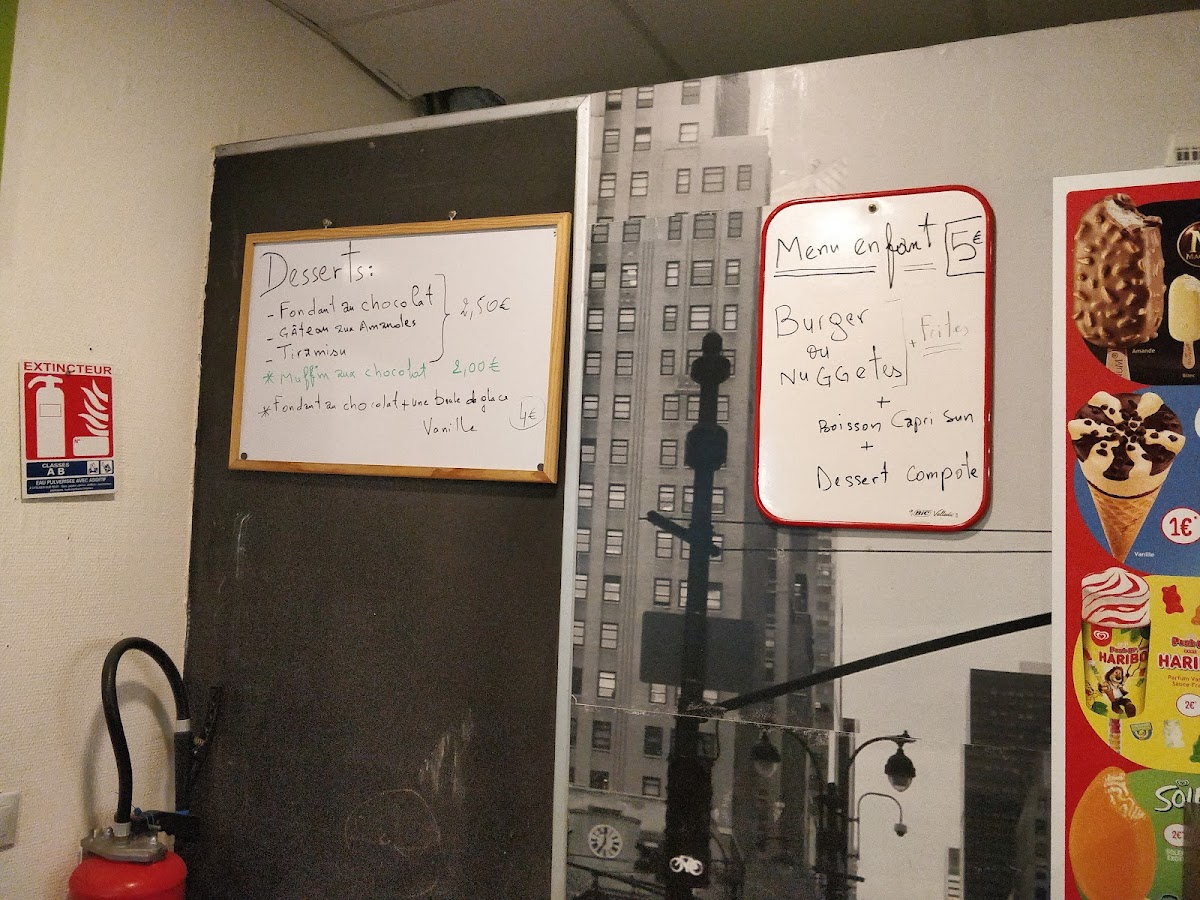 EXTINCTEUR
CLASSES
A B
EAU PULVERISEE AVEC ADDITIF
Desserts:
- Fondant au chocolat
- Gâteau aux Amandes
- Tiramisu
2,50€
* Muffin aux chocolat 2,00€
* Fondant au chocolat + une boule de glace
Vanille
4€
Menu enfant 5€
Burger
ou
NuGGetes
+ Frites
+
Boisson Capri Sun
+
Dessert compote
BIC Velleda
Amande
Blanc
1€*
Vanille
HARIBO
HARIB
2€*
2€*